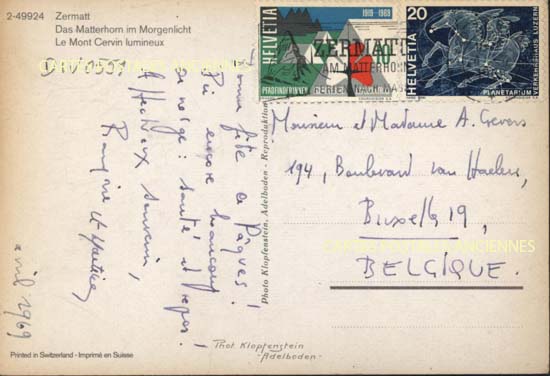 2-49924 Zermatt
Das Matterhorn im Morgenlicht
Le Mont Cervin lumineux
Bonne fête de Pâques !
Ici encore beaucoup
de neige : santé et repos !
Affectueux souvenir,
avril 1969
Printed in Switzerland - Imprimé en Suisse
Photo Klopfenstein, Adelboden - Reproduktion
Phot. Klopfenstein
- Adelboden -
HELVETIA
1919-1969
PFADFINDERINNEN
ZERMATT
AM MATTERHORN
FERIEN NACH MASS
HELVETIA
20
PLANETARIUM
VERKEHRSHAUS LUZERN
Monsieur et Madame A. Gevers
194, Boulevard van Haelen,
Bruxelles 19,
BELGIQUE.
CARTES POSTALES ANCIENNES